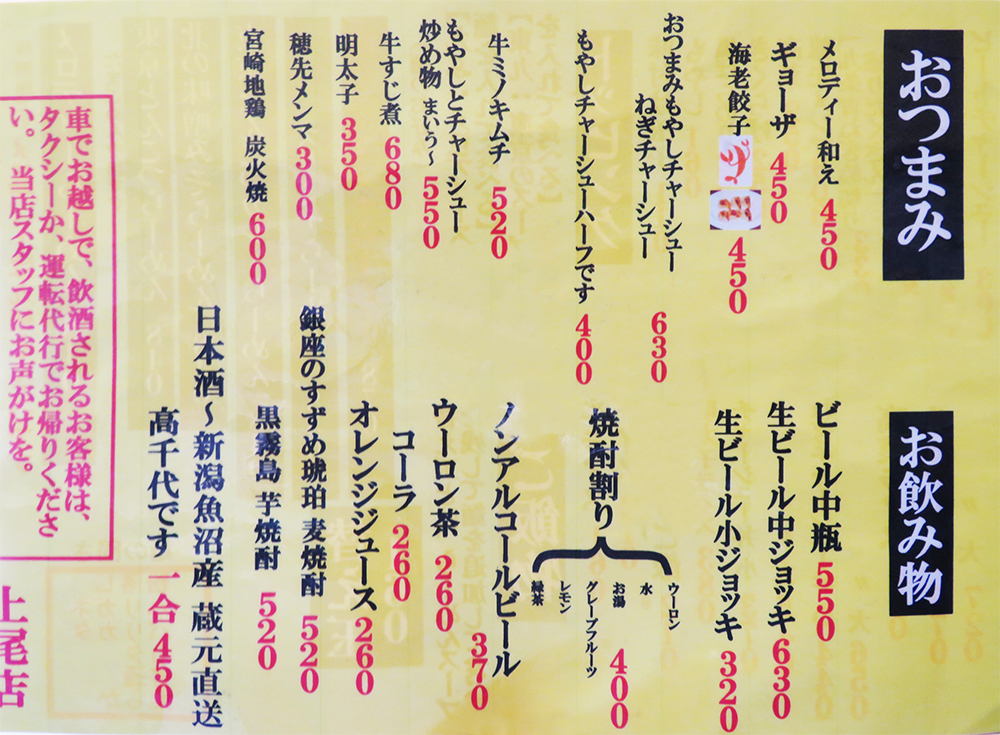 おつまみ
メロディー和え 450
ギョーザ 450
海老餃子 450
おつまみもやしチャーシュー
ねぎチャーシュー 630
もやしチャーシューハーフです 400
牛ミノキムチ 520
もやしとチャーシュー
炒め物 まいう～ 550
牛すじ煮 680
明太子 350
穂先メンマ 300
宮崎地鶏 炭火焼 600
お飲み物
ビール中瓶 550
生ビール中ジョッキ 630
生ビール小ジョッキ 320
焼酎割り 400
ウーロン
水
お湯
グレープフルーツ
レモン
緑茶
ノンアルコールビール 370
ウーロン茶 260
コーラ 260
オレンジジュース 260
銀座のすずめ琥珀 麦焼酎 520
黒霧島 芋焼酎 520
日本酒～新潟魚沼産 蔵元直送
高千代です 一合 450
車でお越しで、飲酒されるお客様は、
タクシーか、運転代行でお帰りくださ
い。 当店スタッフにお声がけを。
上尾店